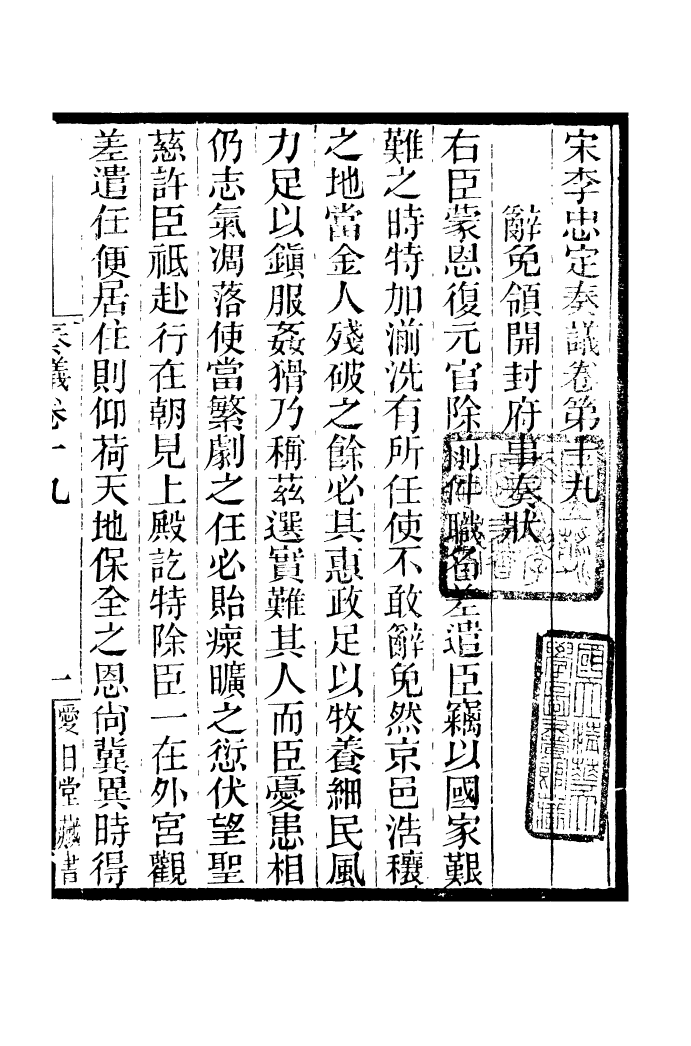 宋李忠定奏議卷第十九
辭免領開封府事奏狀
右臣蒙恩復元官除前件職名差遣臣竊以國家艱
難之時特加湔洗有所任使不敢辭免然京邑浩穰
之地當金人殘破之餘必其惠政足以牧養細民風
力足以鎭服姦猾乃稱茲選實難其人而臣憂患相
仍志氣凋落使當繁劇之任必貽瘝曠之愆伏望聖
慈許臣祗赴行在朝見上殿訖特除臣一在外宮觀
差遣任便居住則仰荷天地保全之恩尙冀異時得
奏議卷十九
一
愛日堂藏書